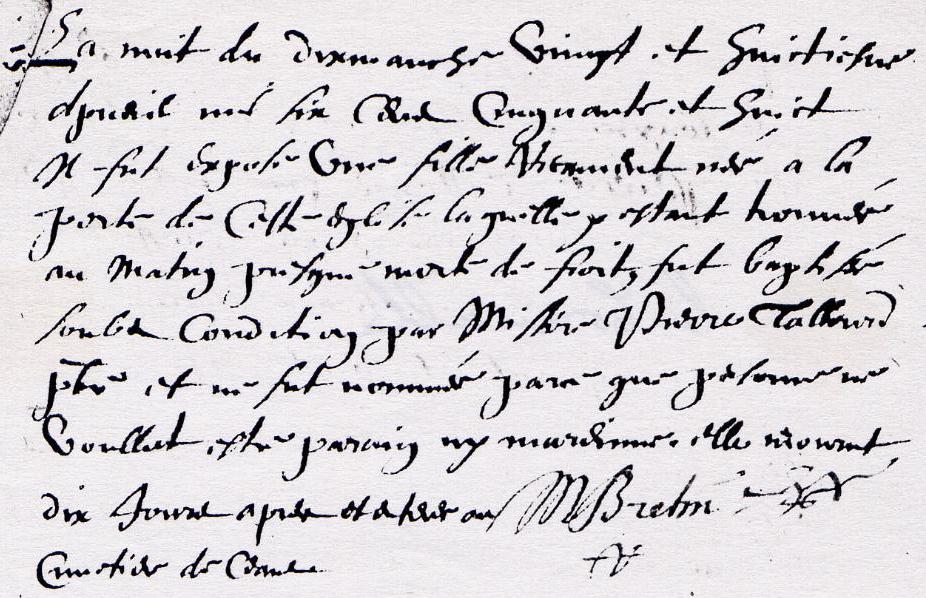 La nuit du dixmanche Vingt et huictiesme
dapvril mil six Cens Cinquante et huict
Il fut expose Une fille Vivement née a la
porte de Ceste eglise laquelle y estant trouvée
au Matin presque morte de froitz fut baptisée
soubz Condition par Missire Pierre Tallourd
pbre et ne fut nommée parce que persone ne
Voullut estre parain ny mardinne. elle mourut
dix Jours apres et enteree au MBreton
Cimetiere de Ceans